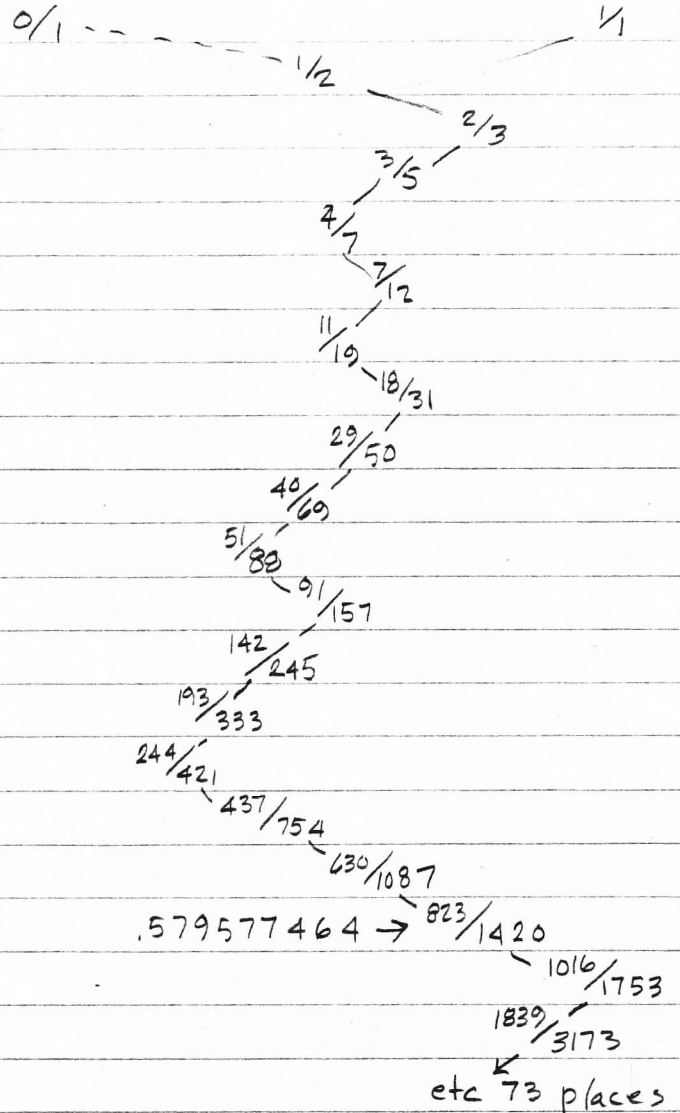 0/1 1/1
1/2
2/3
3/5
4/7
7/12
11/19
18/31
29/50
40/69
51/88
91/157
142/245
193/333
244/421
437/754
630/1087
.579577464 → 823/1420
1016/1753
1839/3173
etc 73 places